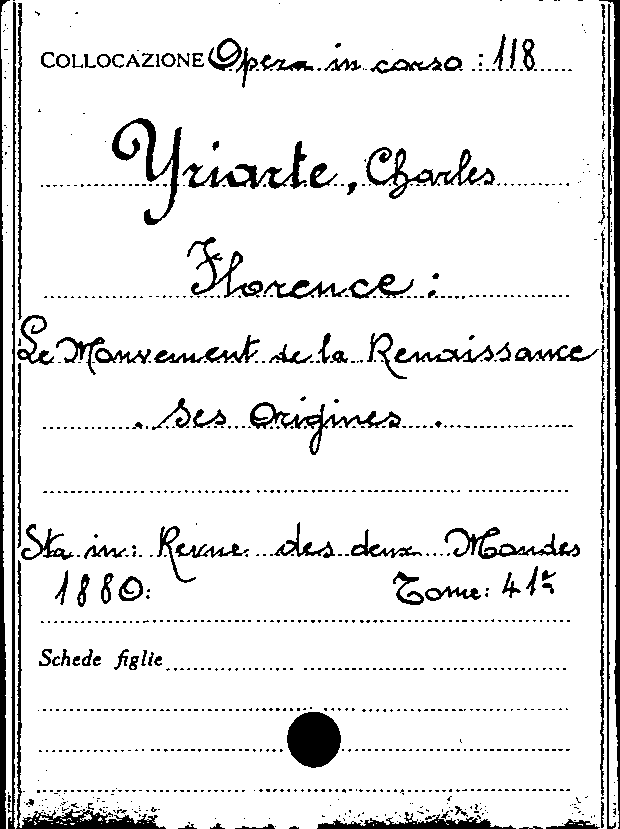 COLLOCAZIONE Opera in corso : 118
Yriarte, Charles
Florence :
Le Mouvement de la Renaissance
. Ses Origines .
Sta in: Revue des deux Mondes
1880: Tome: 41
Schede figlie